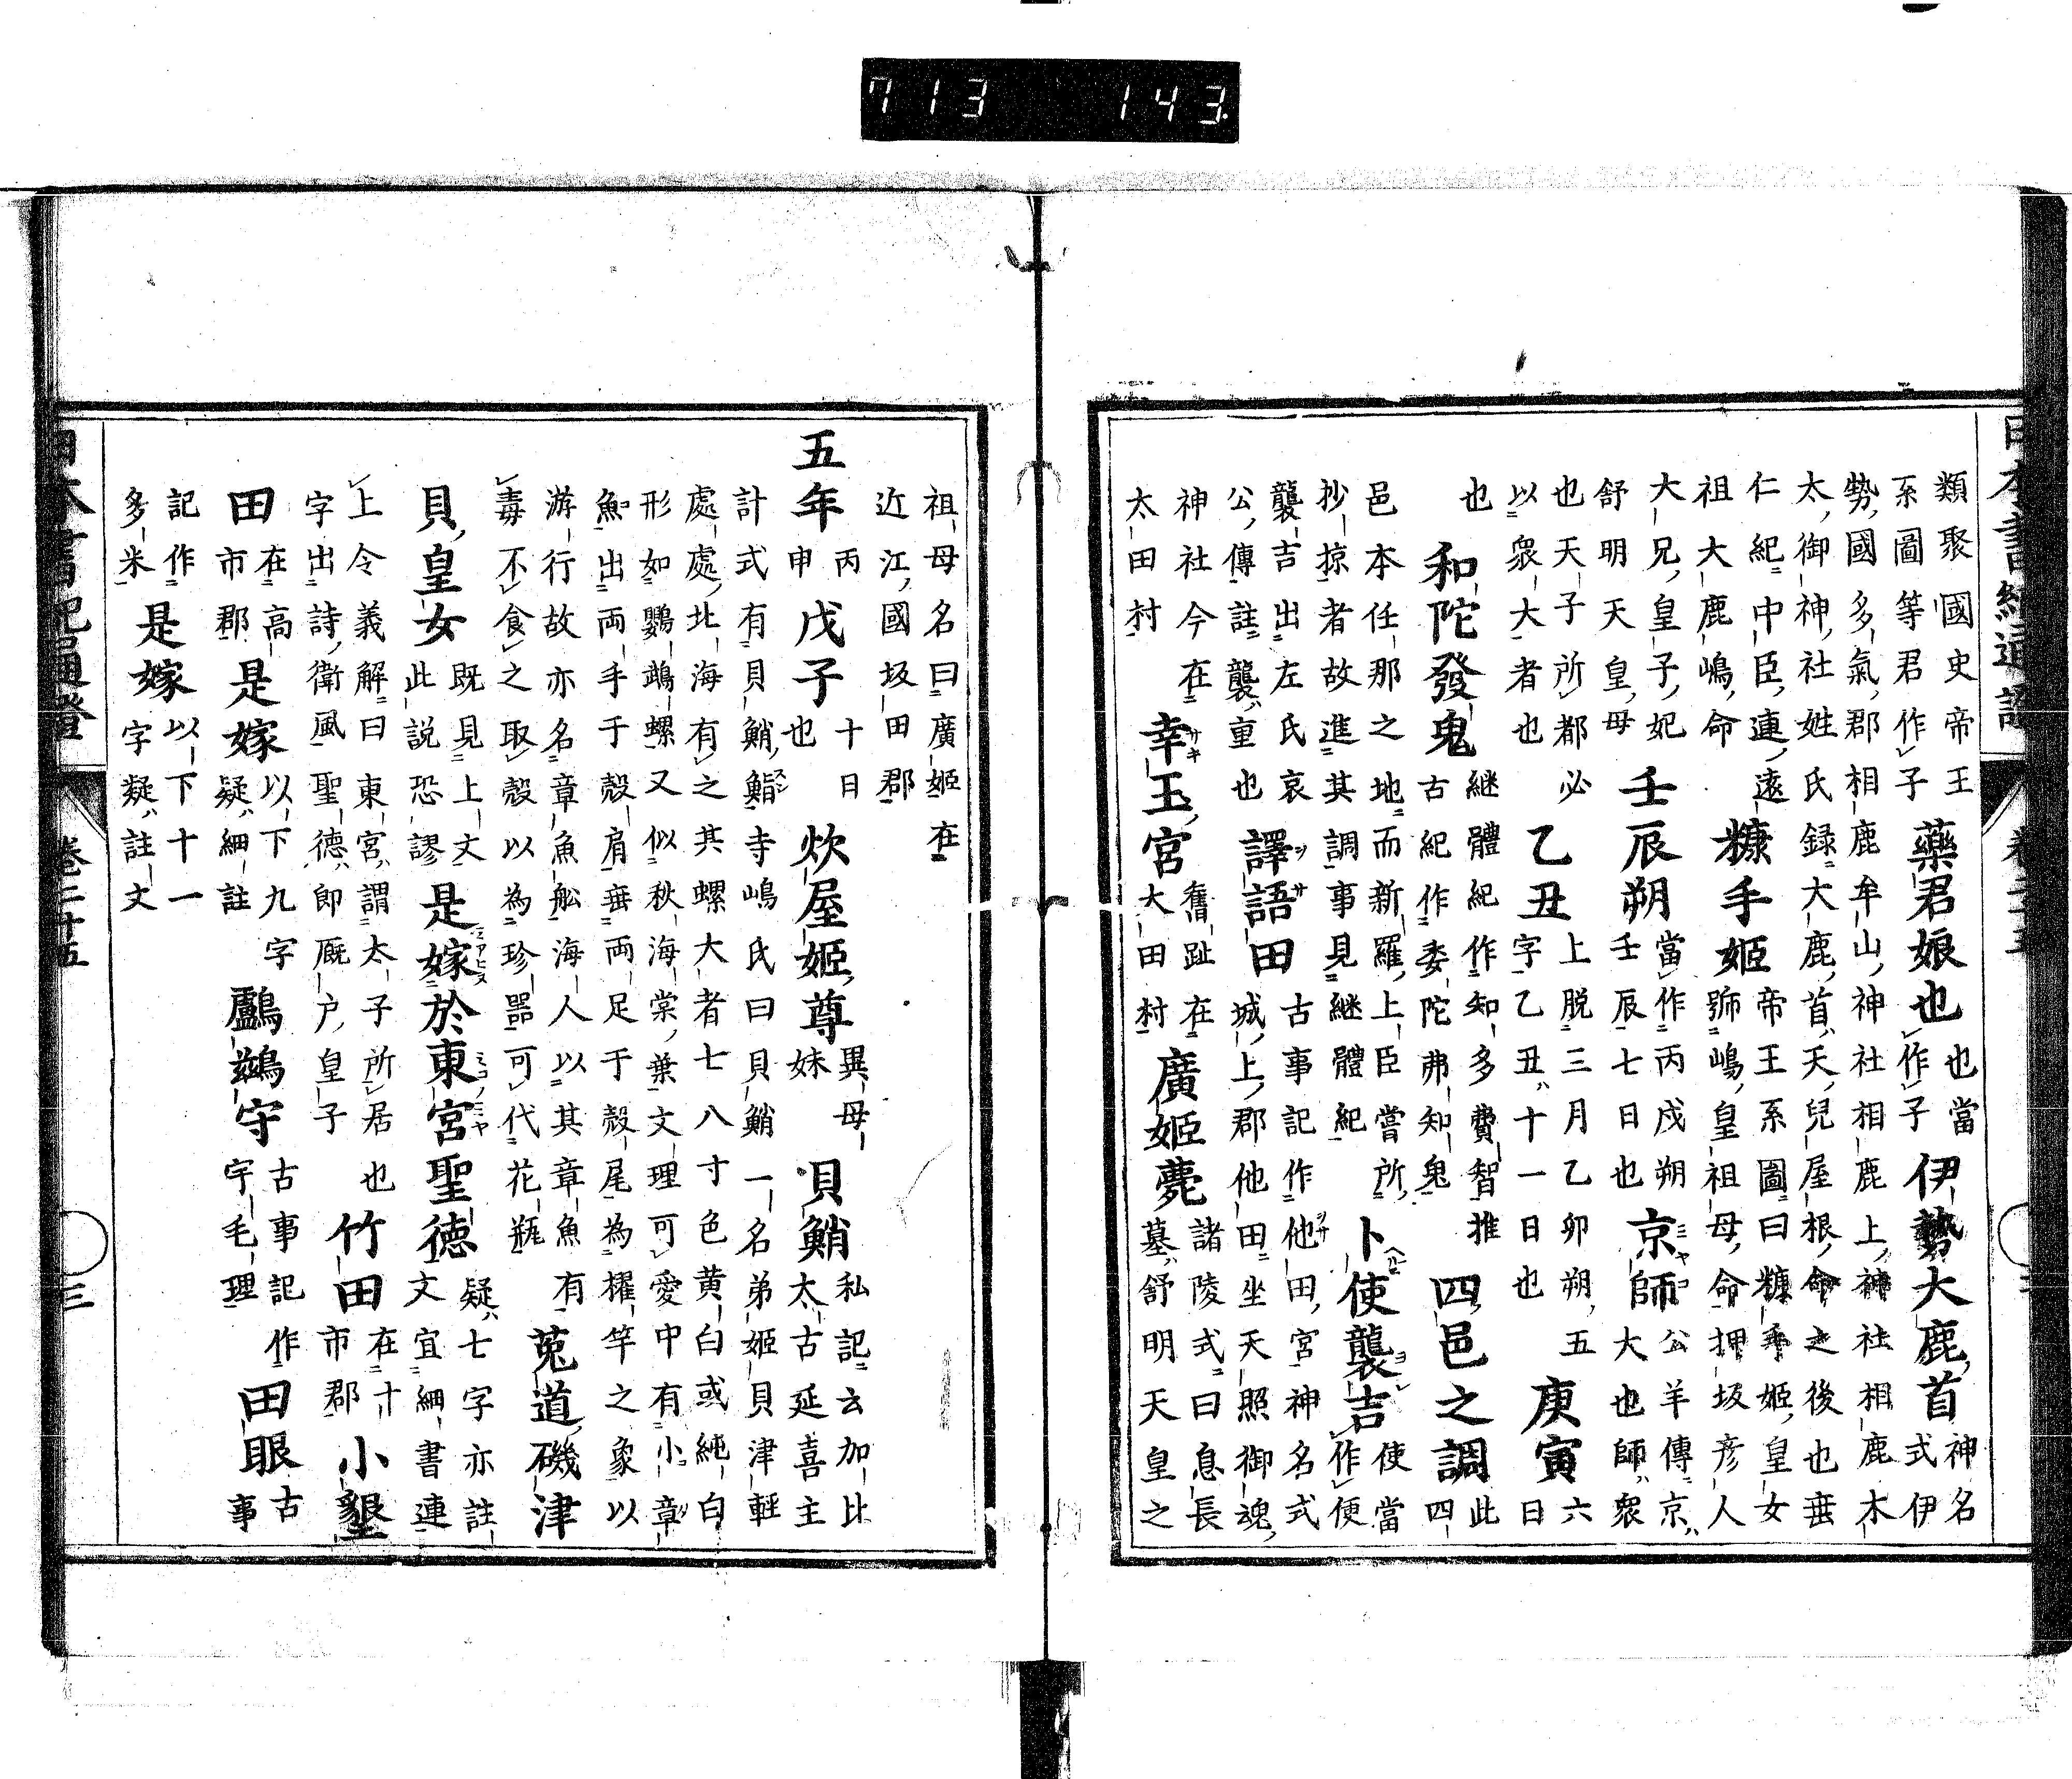 類聚國史帝王
系圖等君作子
藥君娘也
也當
作子
伊勢大鹿首
神名
式伊
勢國多氣郡相鹿牟山神社相鹿上神社相鹿木
太御神社姓氏録大鹿首天兒屋根命之後也垂
仁紀中臣連遠
祖大鹿嶋命
糠手姫
帝王系圖曰糠手姫皇女
號嶋皇祖母命押坂彦人
大兄皇子妃
舒明天皇母
壬辰朔
當作丙戌朔
壬辰七日也
京師
公羊傳京
大也師衆
也天子所都必
以衆大者也
乙丑
上脱三月乙卯朔五
字乙丑十一日也
庚寅
六
日
也
和陀發鬼
継體紀作知多費智推
古紀作委陀弗知鬼
四邑之調
此
四
邑本任那之地而新羅上臣嘗所
抄掠者故進其調事見継體紀
卜使襲吉
使當
作便
襲吉出左氏哀
公傳註襲重也
譯語田
古事記作他田宮神名式
城上郡他田坐天照御魂
神社今在
太田村
幸玉宮
舊趾在
大田村
廣姫薨
諸陵式曰息長
墓舒明天皇之
祖母名曰廣姫在
近江國坂田郡
五年
丙
申
戊子
十日
也
炊屋姫尊
異母
妹
貝鮹
私記云加比
太古延喜主
計式有貝鮹鮨寺嶋氏曰貝鮹一名弟姫貝津輕
處處北海有之其螺大者七八寸色黄白或純白
形如鸚鵡螺又似秋海棠葉文理可愛中有小章
魚出両手于殻肩垂両足于殻尾為櫂竿之象以
游行故亦名章魚舩海人以其章魚有
毒不食之取殻以為珍器可代花瓶
菟道磯津
貝皇女
既見上文
此説恐謬
是嫁於東宮聖徳
疑七字亦註
文宜細書連
上令義解曰東宮謂太子所居也
字出詩衛風聖徳即厩戸皇子
竹田
在十
市郡
小墾
田
在高
市郡
是嫁
以下九字
疑細註
鸕鷀守
古事記作
宇毛理
田眼
古
事
記作
多米
是嫁
以下十一
字疑註文
日本書紀通證 卷二十五 三
713 143